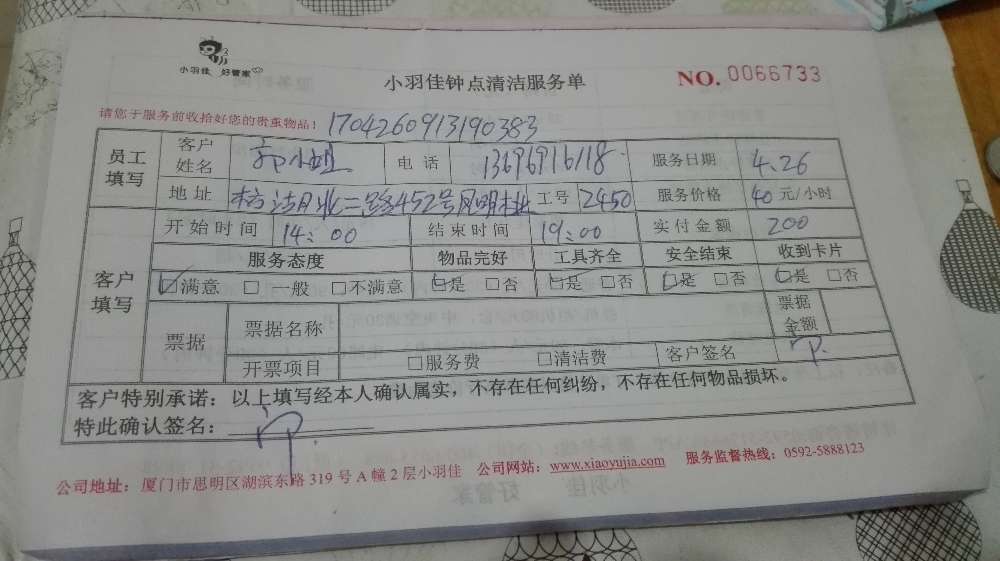 小羽佳 好管家
小羽佳钟点清洁服务单
NO. 0066733
请您于服务前收拾好您的贵重物品！ 1704260913190383
员工填写 客户姓名 小姐 电话 13696916118 服务日期 4.26
地址 二路452号 工号 2450 服务价格 40 元/小时
客户填写 开始时间 14:00 结束时间 19:00 实付金额 200
服务态度 物品完好 工具齐全 安全结束 收到卡片
☑满意 □一般 □不满意 ☑是 □否 ☑是 □否 ☑是 □否 ☑是 □否
票据 票据名称 票据金额
开票项目 □服务费 □清洁费 客户签名
客户特别承诺：以上填写经本人确认属实，不存在任何纠纷，不存在任何物品损坏。
特此确认签名：
公司地址：厦门市思明区湖滨东路319号A幢2层小羽佳 公司网站：www.xiaoyujia.com 服务监督热线：0592-5888123